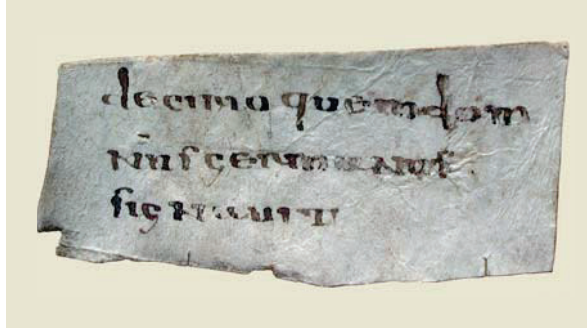 decimo quem dom
nus germanus
signauit